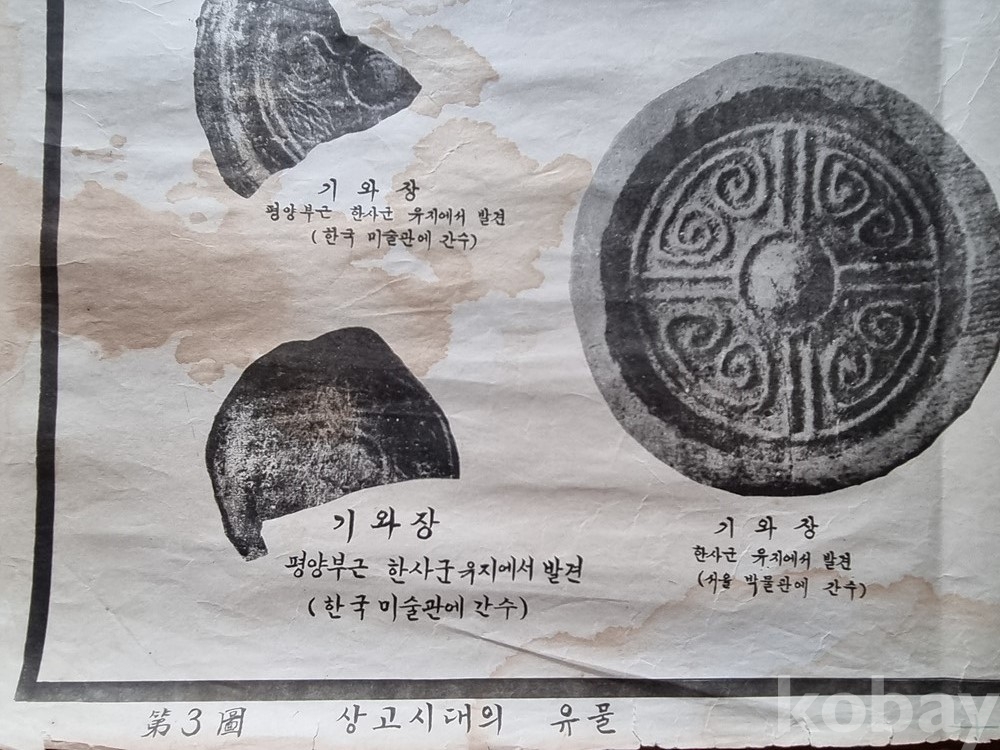 기와장
평양부근 한사군 유지에서 발견
(한국 미술관에 간수)
기와장
평양부근 한사군 유지에서 발견
(한국 미술관에 간수)
기와장
한사군 유지에서 발견
(서울 박물관에 간수)
第3圖 상고시대의 유물
kobay